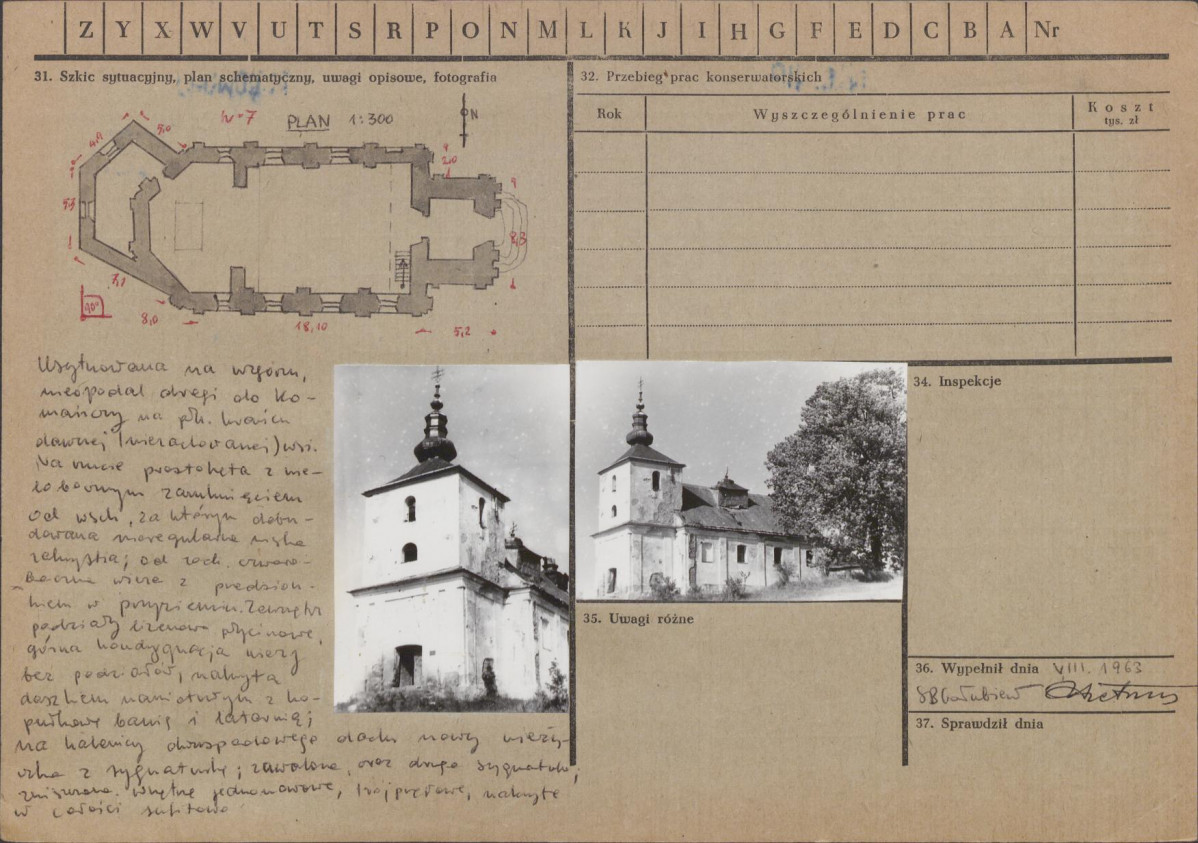 Z Y X W V U T S R P O N M L K J I H G F E D C B A Nr
31. Szkic sytuacyjny, plan schematyczny, uwagi opisowe, fotografia
PLAN 1:300
N
5,0
2,0
7,1
90°
8,0
18,10
5,2
Usytuowana na wzgórzu,
nieopodal drogi do Ko-
mańczy na płn. krańcu
dawnej (niezachowanej) wsi.
Na rzucie prostokąta z wie-
lobocznym zamknięciem
od wsch., za którym dobu-
dowana nieregularna niska
zakrystia; od zach. czworo-
boczna wieża z przedsion-
kiem w przyziemiu. Zewnątrz
podziały lizenowo płycinowe,
górna kondygnacja wieży
bez podziałów, nakryta
daszkiem namiotowym z ko-
pulkową banią i latarnią;
na kalenicy dwuspadowego dachu nowy wieży-
czka z sygnaturką; zawalona, oraz druga sygnaturka,
zniszczona. Wnętrze jednonawowe, trójprzęsłowe, nakryte
w całości sufitowo
32. Przebieg prac konserwatorskich
Rok
Wyszczególnienie prac
Koszt
tys. zł
34. Inspekcje
35. Uwagi różne
36. Wypełnił dnia VIII. 1963
37. Sprawdził dnia